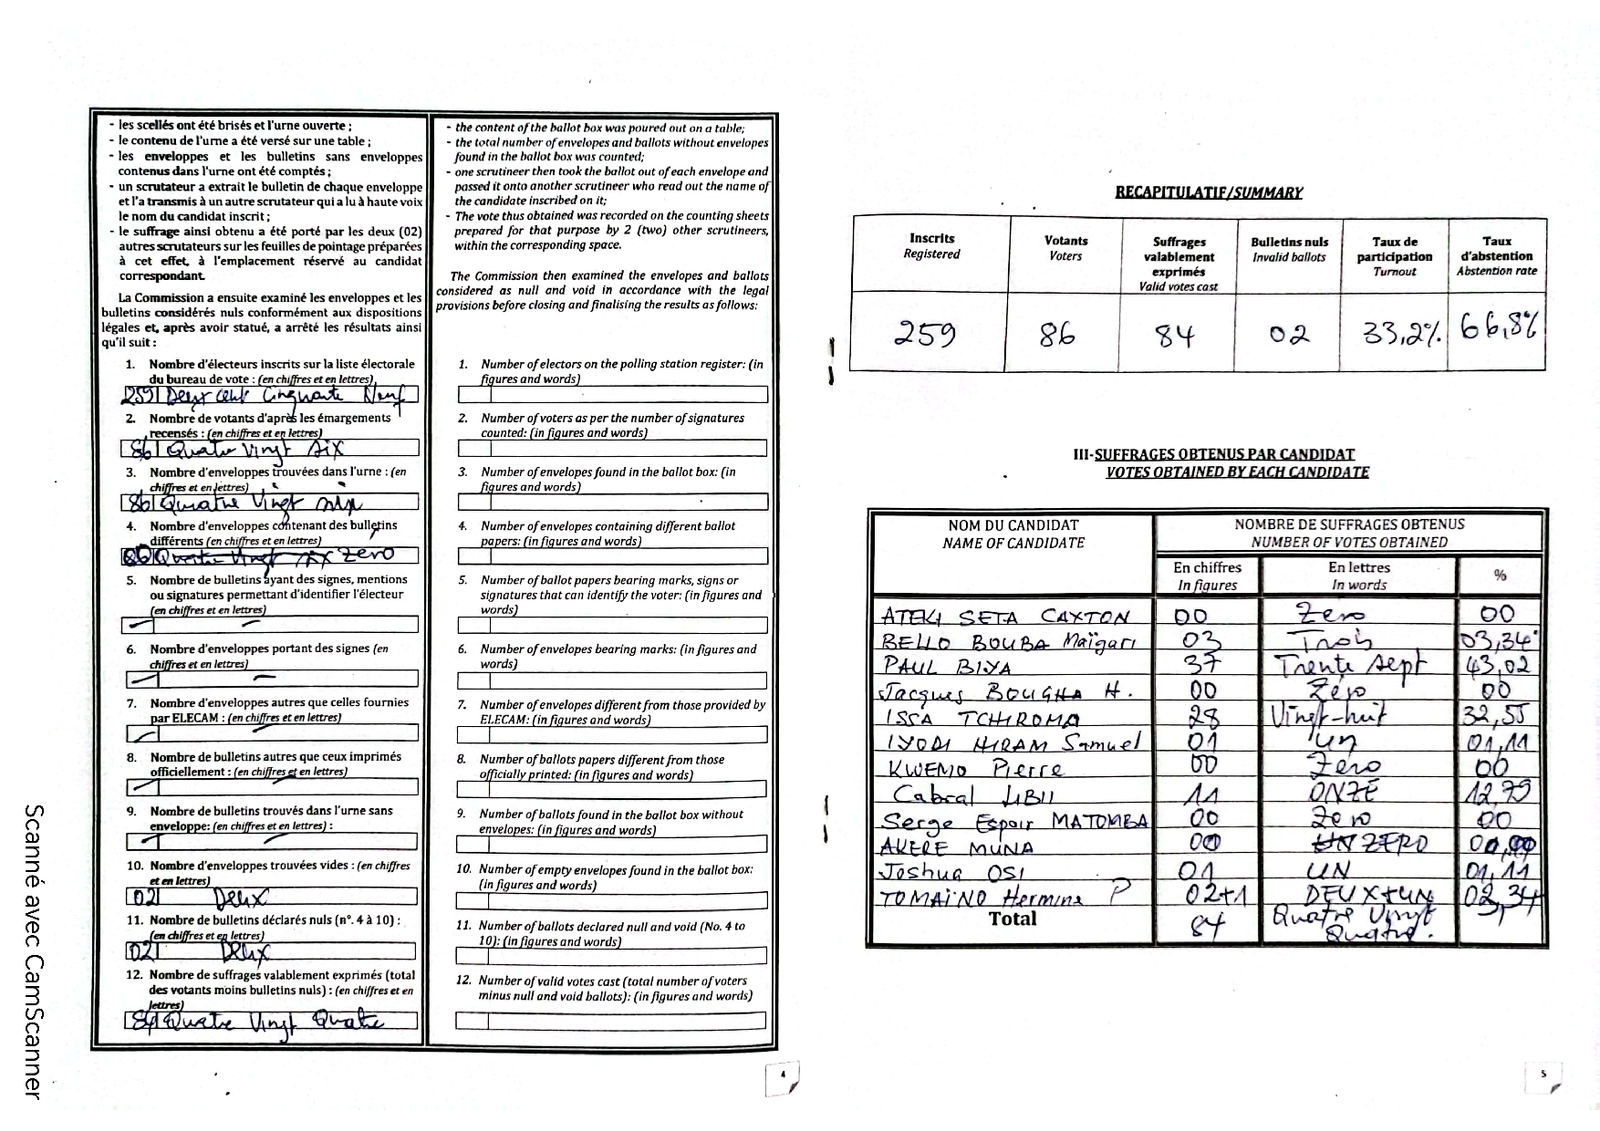 - les scellés ont été brisés et l'urne ouverte ;
- le contenu de l'urne a été versé sur une table ;
- les enveloppes et les bulletins sans enveloppes
contenus dans l'urne ont été comptés ;
- un scrutateur a extrait le bulletin de chaque enveloppe
et l'a transmis à un autre scrutateur qui a lu à haute voix
le nom du candidat inscrit ;
- le suffrage ainsi obtenu a été porté par les deux (02)
autres scrutateurs sur les feuilles de pointage préparées
à cet effet, à l'emplacement réservé au candidat
correspondant.
La Commission a ensuite examiné les enveloppes et les
bulletins considérés nuls conformément aux dispositions
légales et, après avoir statué, a arrêté les résultats ainsi
qu'il suit :
1. Nombre d'électeurs inscrits sur la liste électorale
du bureau de vote : (en chiffres et en lettres)
259 Deux cent Cinquante Neuf
2. Nombre de votants d'après les émargements
recensés : (en chiffres et en lettres)
86 Quatre Vingt Six
3. Nombre d'enveloppes trouvées dans l'urne : (en
chiffres et en lettres)
86 Quatre Vingt six
4. Nombre d'enveloppes contenant des bulletins
différents (en chiffres et en lettres)
Quatre Vingt six Zero
5. Nombre de bulletins ayant des signes, mentions
ou signatures permettant d'identifier l'électeur
(en chiffres et en lettres)
6. Nombre d'enveloppes portant des signes (en
chiffres et en lettres)
7. Nombre d'enveloppes autres que celles fournies
par ELECAM : (en chiffres et en lettres)
8. Nombre de bulletins autres que ceux imprimés
officiellement : (en chiffres et en lettres)
9. Nombre de bulletins trouvés dans l'urne sans
enveloppe: (en chiffres et en lettres) :
10. Nombre d'enveloppes trouvées vides : (en chiffres
et en lettres)
02 Deux
11. Nombre de bulletins déclarés nuls (n°. 4 à 10) :
(en chiffres et en lettres)
02 Deux
12. Nombre de suffrages valablement exprimés (total
des votants moins bulletins nuls) : (en chiffres et en
lettres)
84 Quatre Vingt Quatre
- the content of the ballot box was poured out on a table;
- the total number of envelopes and ballots without envelopes
found in the ballot box was counted;
- one scrutineer then took the ballot out of each envelope and
passed it onto another scrutineer who read out the name of
the candidate inscribed on it;
- The vote thus obtained was recorded on the counting sheets
prepared for that purpose by 2 (two) other scrutineers,
within the corresponding space.
The Commission then examined the envelopes and ballots
considered as null and void in accordance with the legal
provisions before closing and finalising the results as follows:
1. Number of electors on the polling station register: (in
figures and words)
2. Number of voters as per the number of signatures
counted: (in figures and words)
3. Number of envelopes found in the ballot box: (in
figures and words)
4. Number of envelopes containing different ballot
papers: (in figures and words)
5. Number of ballot papers bearing marks, signs or
signatures that can identify the voter: (in figures and
words)
6. Number of envelopes bearing marks: (in figures and
words)
7. Number of envelopes different from those provided by
ELECAM: (in figures and words)
8. Number of ballots papers different from those
officially printed: (in figures and words)
9. Number of ballots found in the ballot box without
envelopes: (in figures and words)
10. Number of empty envelopes found in the ballot box:
(in figures and words)
11. Number of ballots declared null and void (No. 4 to
10): (in figures and words)
12. Number of valid votes cast (total number of voters
minus null and void ballots): (in figures and words)
4
RECAPITULATIF/SUMMARY
Inscrits Registered | Votants Voters | Suffrages valablement exprimés Valid votes cast | Bulletins nuls Invalid ballots | Taux de participation Turnout | Taux d'abstention Abstention rate
259 86 84 02 33,2% 66,8%
III-SUFFRAGES OBTENUS PAR CANDIDAT
VOTES OBTAINED BY EACH CANDIDATE
NOM DU CANDIDAT NOMBRE DE SUFFRAGES OBTENUS
NAME OF CANDIDATE NUMBER OF VOTES OBTAINED
En chiffres En lettres %
In figures In words
ATEKI SETA CAXTON 00 Zero 00
BELLO BOUBA Maïgari 03 Trois 03,34
PAUL BIYA 37 Trente sept 43,02
Jacques BOUGHA H. 00 Zéro 00
ISSA TCHIROMA 28 Vingt-huit 32,55
IYODI HIRAM Samuel 01 un 01,11
KWEMO Pierre 00 Zero 00
Cabral LIBII 11 ONZE 12,79
Serge Espoir MATOMBA 00 Zero 00
AKERE MUNA 00 UN ZERO 00,00
Joshua OSI 01 UN 01,11
TOMAÏNO Hermine P 02+1 DEUX+UN 02,34
Total 84 Quatre Vingt
Quatre.
5
Scanné avec CamScanner